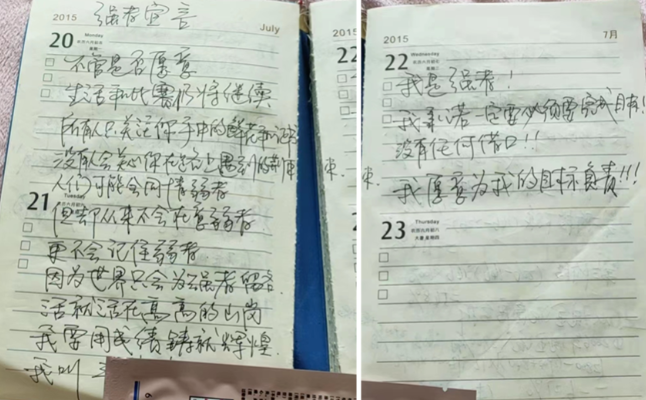 2015
强者宣言
July
20
Monday
不管是否愿意
生活和比赛仍将继续
所有人只关注你手中的鲜花和
没有人会关心你在路上遇到的荆
人们可能会同情弱者
21
Tuesday
但却从来不会在意弱者
更不会记住弱者
因为世界只会为强者
活就活在高高的山岗
我要用成绩铸就辉煌
我叫
22
束.
束.
23
2015
7月
22
Wednesday
我是强者!
我承诺一定要必须要完成目标!
没有任何借口!!
我愿意为我的目标负责!!!
23
Thursday